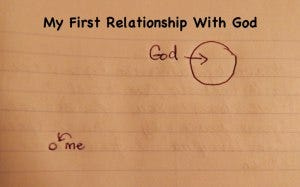 My First Relationship With God
God
me